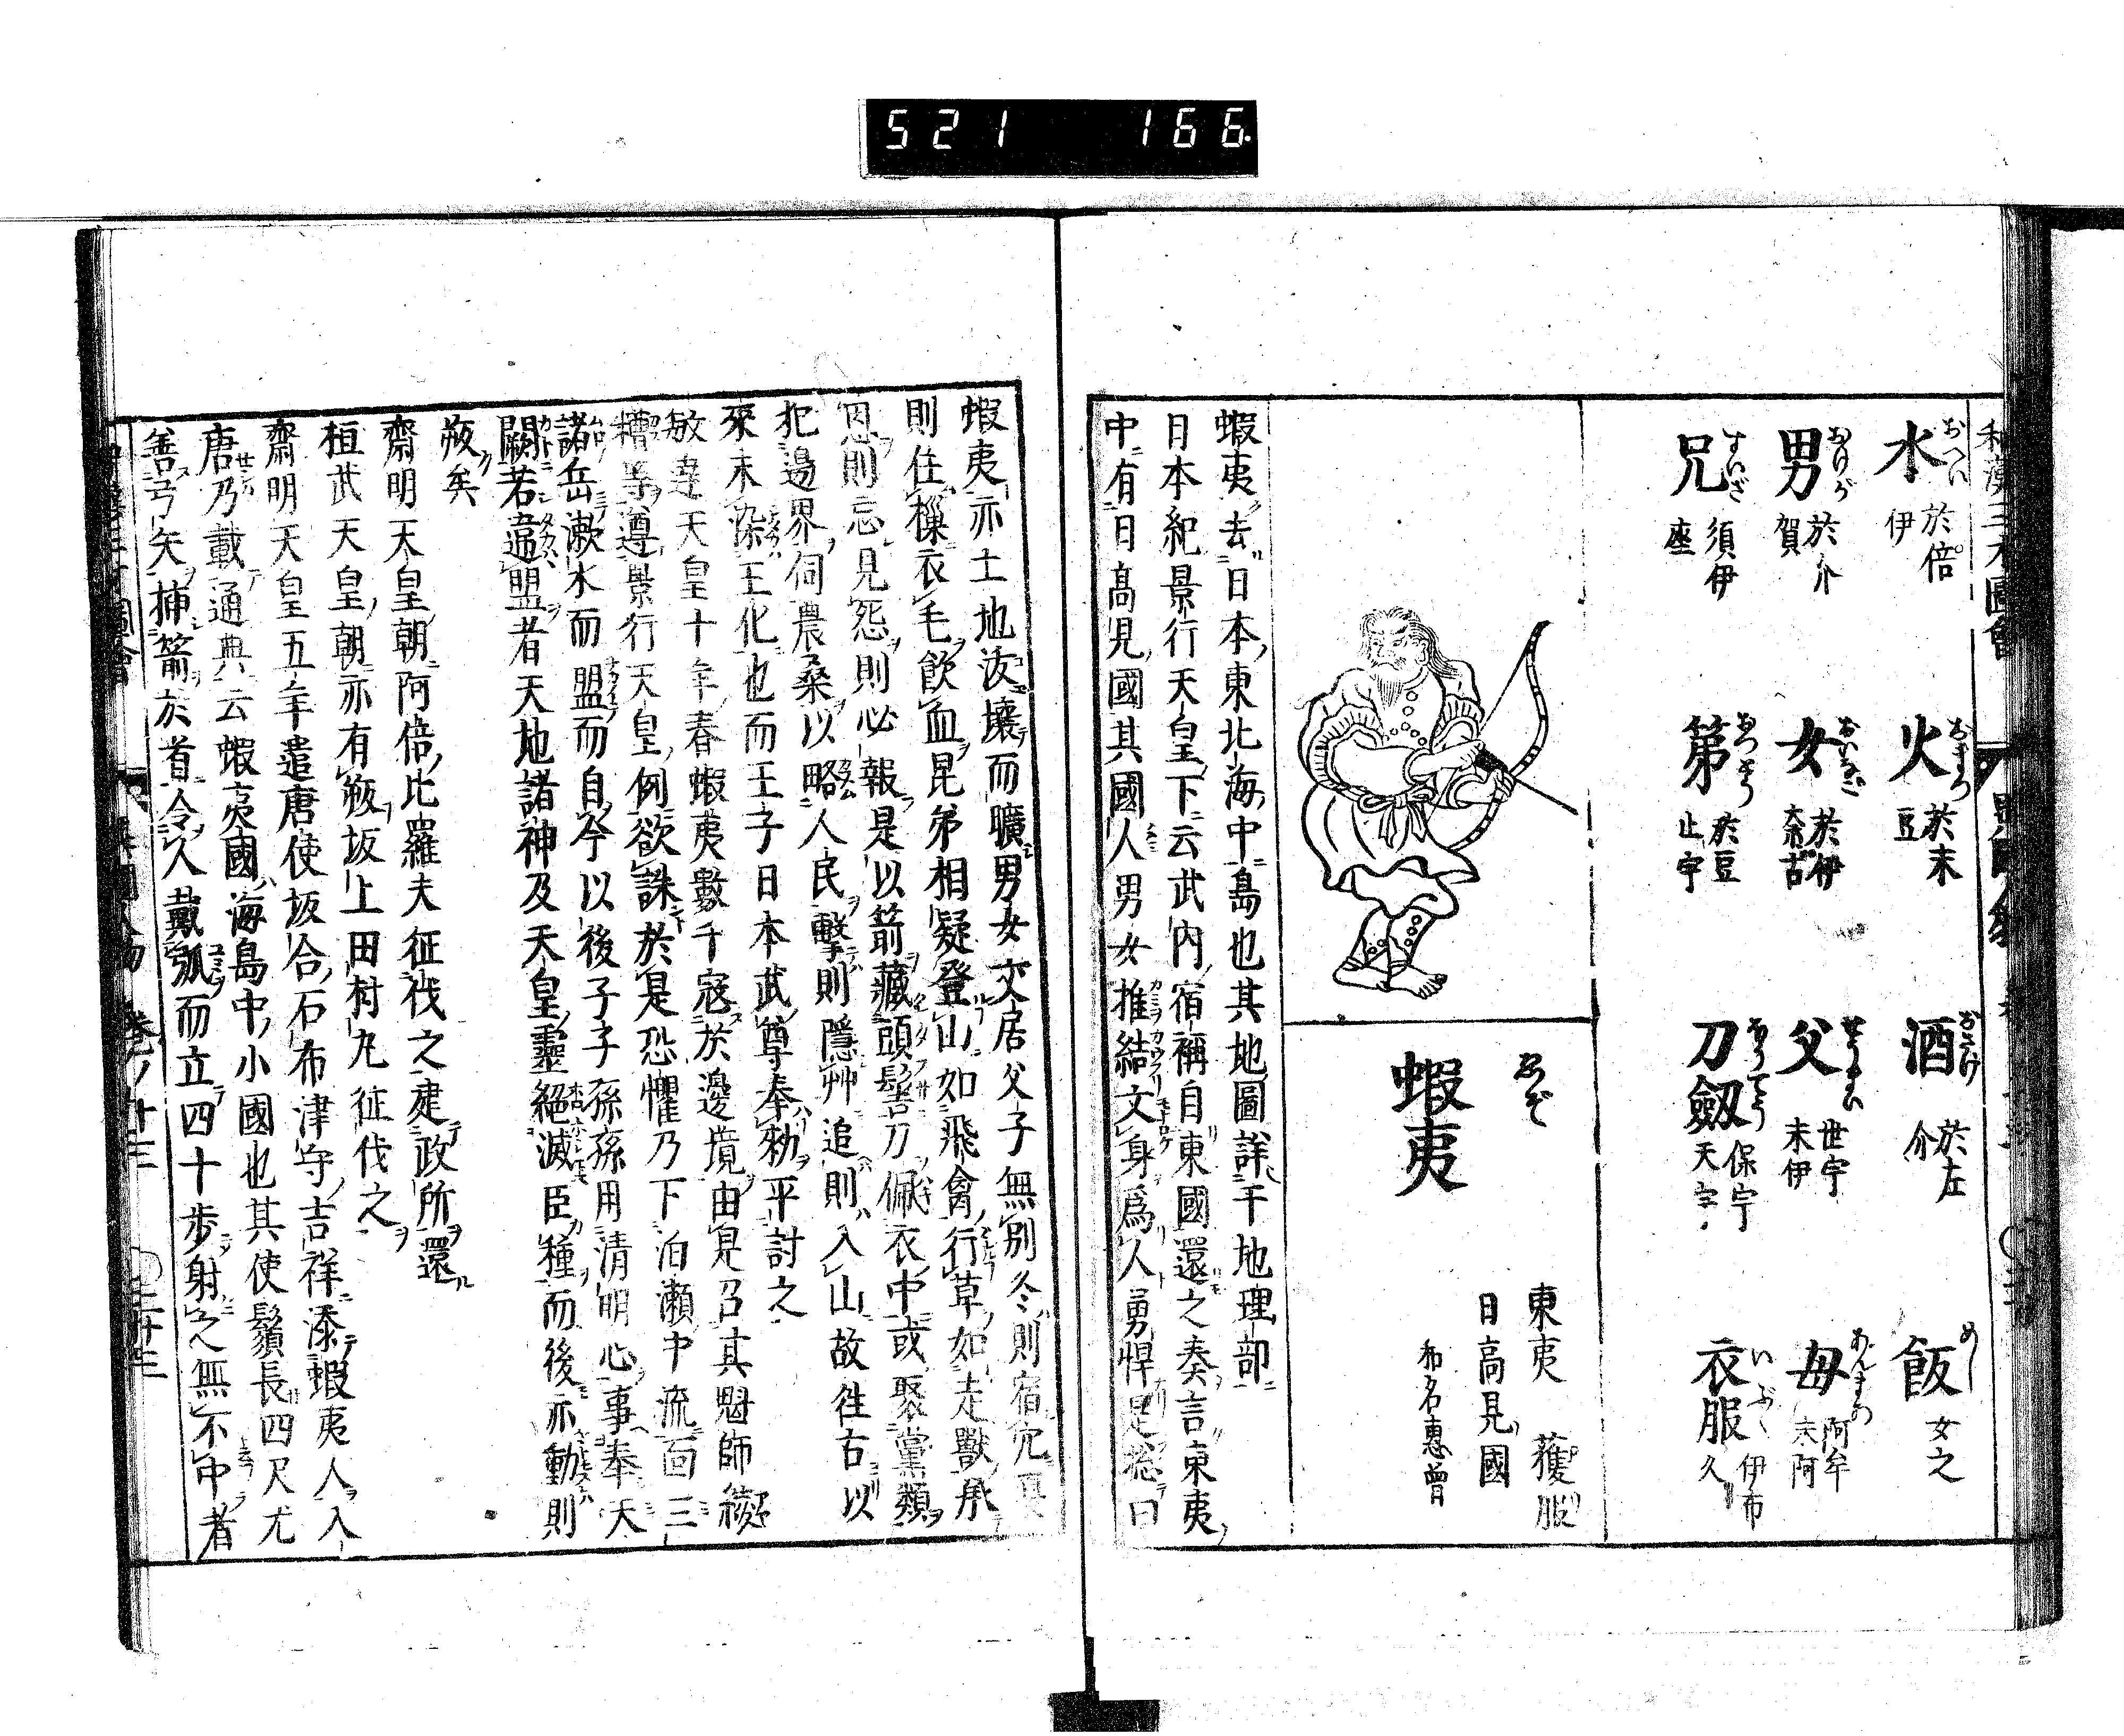 521 166
和漢三才圖會
水 おへい 於倍伊
火 おまつ 於末豆
酒 おさけ 於左介
飯 めし 女之
男 おけが 於介賀
女 おいなご 於伊奈古
父 せうまい 世宇末伊
母 あんまあ 阿牟末阿
兄 すいざ 須伊座
第 おつとう 於豆止宇
刀劔 ほうてう 保宇天宇
衣服 いぶく 伊布久
蝦夷 ゑぞ
東夷
日高見國
和名惠曾
蝦夷去日本東北海中島也其地圖詳于地理部
日本紀景行天皇下云武内宿禰自東國還之奏言東夷
中有日高見國其國人男女推結文身爲人勇悍是総曰
蝦夷亦土地汝壤而曠男女交居父子無別冬則宿穴夏
則住樔衣毛飲血昆弟相疑登山如飛禽行草如走獸承
恩則忘見怨則必報是以箭藏頭髻刀佩衣中或聚黨類
犯邊界伺農桑以略人民擊則隱艸追則入山故往古以
來未染王化也而王子日本武尊奉勅平討之
敏達天皇十年春蝦夷數千寇於邊境由是召其魁師綾
糟等遵景行天皇例欲誅於是恐懼乃下泊瀬中流面三
諸岳漱水而盟而自今以後子子孫孫用清明心事奉天
闕若違盟者天地諸神及天皇靈絕滅臣種而後亦動則
叛矣
齋明天皇朝阿倍比羅夫征伐之建政所還
桓武天皇朝亦有叛坂上田村丸征伐之
齋明天皇五年遣唐使坂合石布津守吉祥添蝦夷人入
唐乃載通典云蝦夷國海島中小國也其使鬚長四尺尤
善弓矢挿箭於首令人戴瓠而立四十步射之無不中者
卷ノ十三